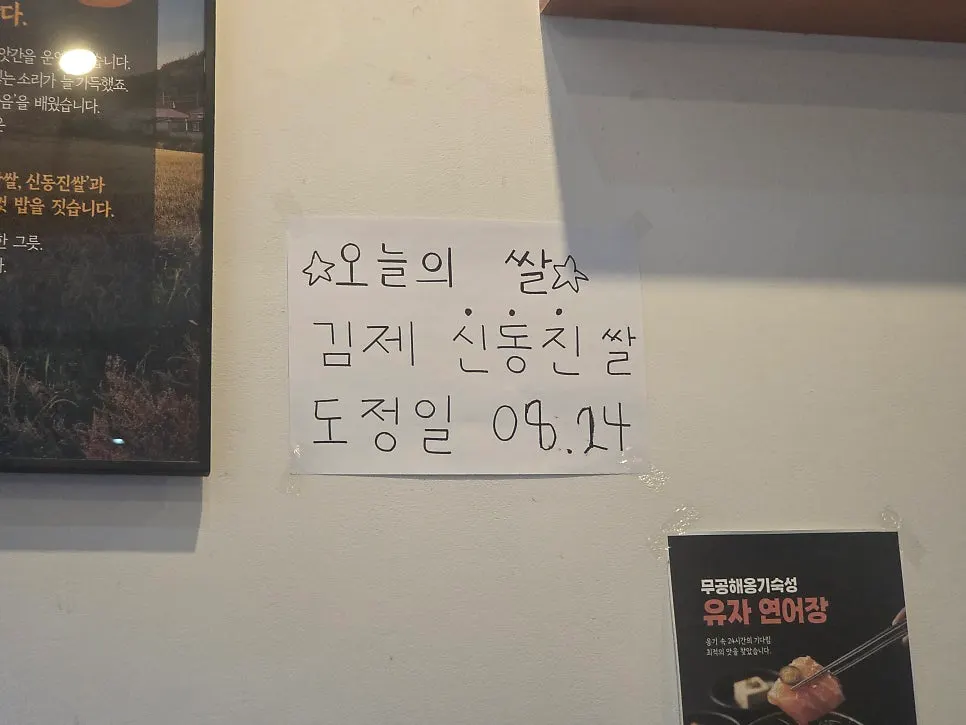 다.
앗간을 운영 습니다.
있는 소리가 늘 가득했죠.
음'을 배웠습니다.
은
쌀, 신동진쌀'과
밥을 짓습니다.
한 그릇.
다.
☆오늘의 쌀☆
김제 신동진 쌀
도정일 08.24
무공해옹기숙성
유자 연어장
옹기 속 24시간의 기다림
최적의 맛을 찾았습니다.